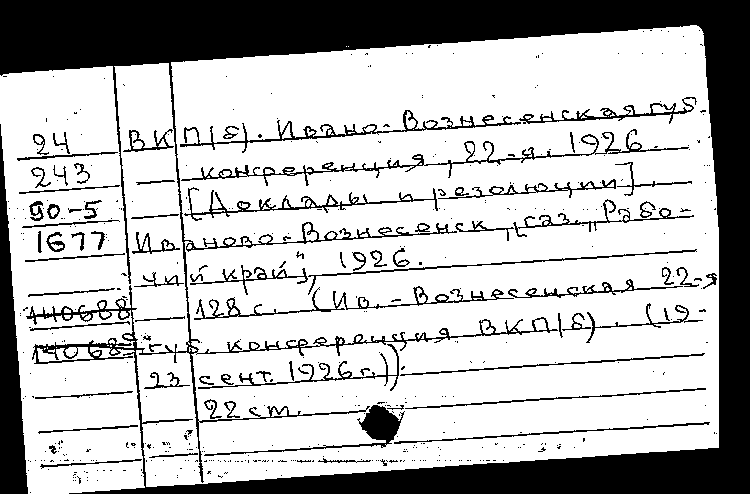 24 ВКП(б). Ивано-Вознесенская губ.
243 конференция, 22-я. 1926.
90-5 [Доклады и резолюции].
1677 Иваново-Вознесенск, [газ. „Рабо-
чий край"], 1926.
140688 128 с. (Ив.-Вознесенская 22-я
140689 губ. конференция ВКП(б). (19-
23 сент. 1926 г.)).
22 см.